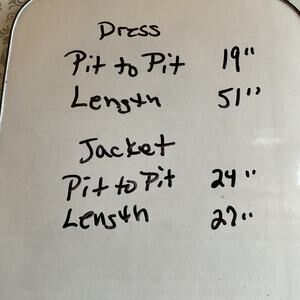 Dress
Pit to Pit 19"
Length 51"
Jacket
Pit to Pit 24"
Length 27"